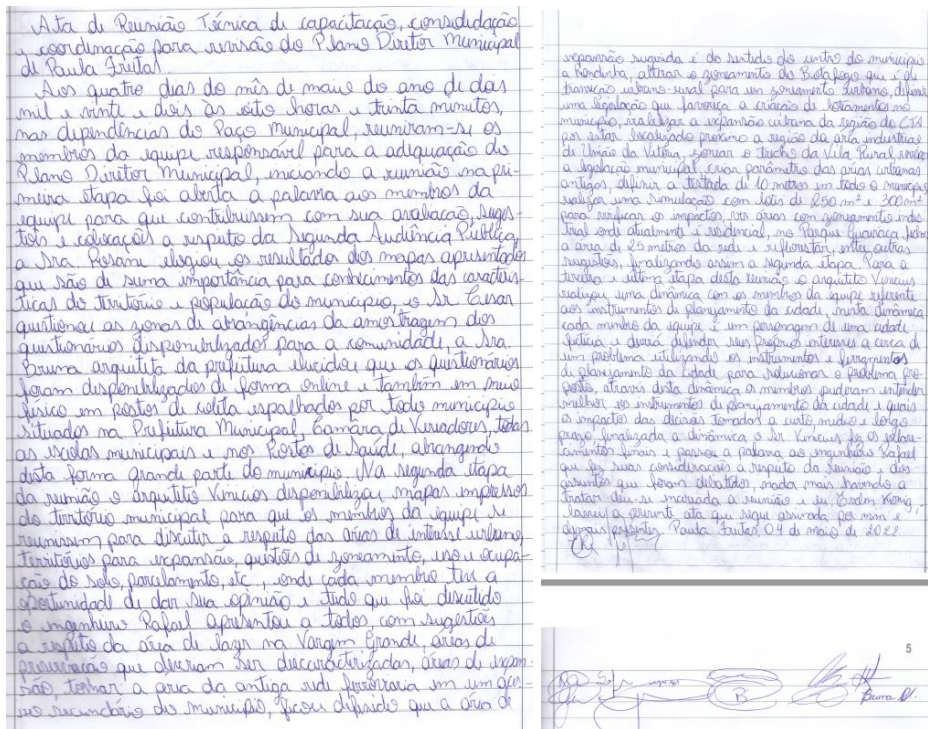 Ata de Reunião Técnica de capacitação, consolidação
e coordenação para revisão do Plano Diretor Municipal
de Paula Freitas
Aos quatro dias do mês de maio do ano de dois
mil e vinte e dois às oito horas e trinta minutos,
nas dependências do Paço Municipal, reuniram-se os
membros da equipe responsável para a adequação do
Plano Diretor Municipal, iniciando a reunião na pri-
meira etapa foi aberta a palavra aos membros da
equipe para que contribuissem com sua avaliação, suges-
tões e colocações a respeito da Segunda Audiência Pública,
a Sra. Rosani elogiou os resultados dos mapas apresentados
que são de suma importância para conhecimentos das caracterís-
ticas do território e população do município, o Sr. Cesar
questionou as zonas de abrangências da amostragem dos
questionários disponibilizados para a comunidade, a Sra.
Bruna arquiteta da prefeitura elucidou que os questionários
foram disponibilizados de forma online e também em meio
físico em postos de coleta espalhados por todo município
situados na Prefeitura Municipal, Câmara de Vereadores, todas
as escolas municipais e nos Postos de Saúde, abrangendo
desta forma grande parte do município. Na segunda etapa
da reunião o arquiteto Vinicius disponibilizou mapas impressos
do território municipal para que os membros da equipe se
reunissem para discutir a respeito das áreas de interesse urbano,
territórios para expansão, questões de zoneamento, uso e ocupa-
ção do solo, parcelamento, etc., onde cada membro teve a
oportunidade de dar sua opinião e tudo que foi discutido
o engenheiro Rafael apresentou a todos, com sugestões
a respeito da área de lazer na Vargem Grande, áreas de
preservação que deveriam ser descaracterizadas, áreas de expan-
são, tornar a área da antiga rede ferroviária em um
secundário do município, ficou definido que a área de
expansão sugerida é do sentido do centro do município
a Rondinha, alterar o zoneamento do Botafogo que é de
transição urbano-rural para um zoneamento urbano, definir
uma legislação que favoreça a criação de loteamentos no
município, realizar a expansão urbana da região do
por estar localizado próximo a região da área industrial
de União da Vitória, zonear o trecho da Vila Rural,
a legislação municipal, criar parâmetro das áreas urbanas
antigas, definir a testada de 10 metros em todo o município,
realizar uma simulação com lotes de 250 m² e 300 m²
para verificar os impactos, ver áreas com zoneamento indus-
trial onde atualmente é residencial, no Parque Guairacá,
a área de 25 metros da rede e reflorestar, entre outras
sugestões, finalizando assim a segunda etapa. Para a
terceira e última etapa desta reunião o arquiteto Vinicius
realizou uma dinâmica com os membros da equipe referente
aos instrumentos de planejamento da cidade, nesta dinâmica
cada membro da equipe é um personagem de uma cidade
fictícia e deverá defender seus próprios interesses a cerca de
um problema utilizando os instrumentos e ferramentas
de planejamento da cidade para solucionar o problema pro-
posto, através desta dinâmica os membros puderam entender
melhor os instrumentos de planejamento da cidade e quais
os impactos das decisões tomadas a curto, médio e longo
prazo, finalizada a dinâmica o Sr. Vinicius fez os esclare-
cimentos finais e passou a palavra ao engenheiro Rafael
que fez suas considerações a respeito da reunião e dos
assuntos que foram debatidos, nada mais havendo a
tratar deu-se encerrada a reunião e eu
lavrei a presente ata que segue assinada por mim e
demais presentes. Paula Freitas, 04 de maio de 2022
5
B
Bruna